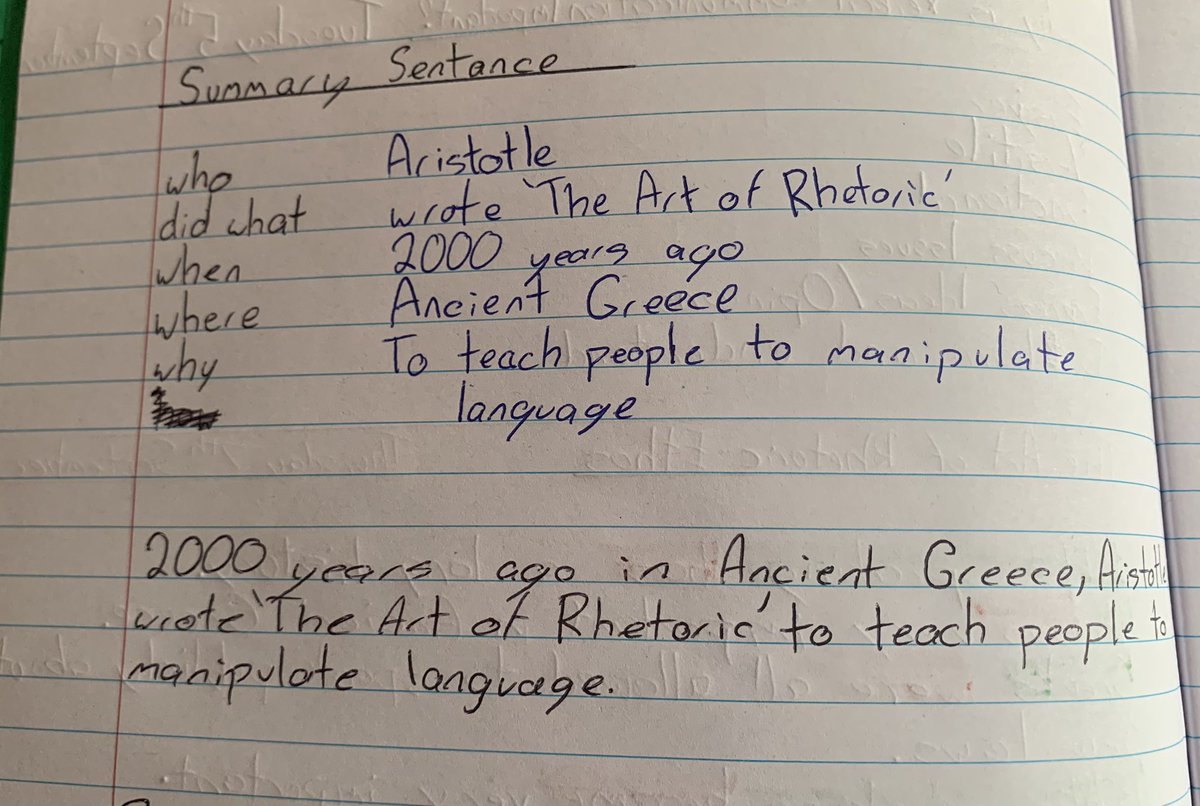 Summary Sentance
who Aristotle
did what wrote 'The Art of Rhetoric'
when 2000 years ago
where Ancient Greece
why To teach people to manipulate
language
2000 years ago in Ancient Greece, Aristotle
wrote 'The Art of Rhetoric' to teach people to
manipulate language.